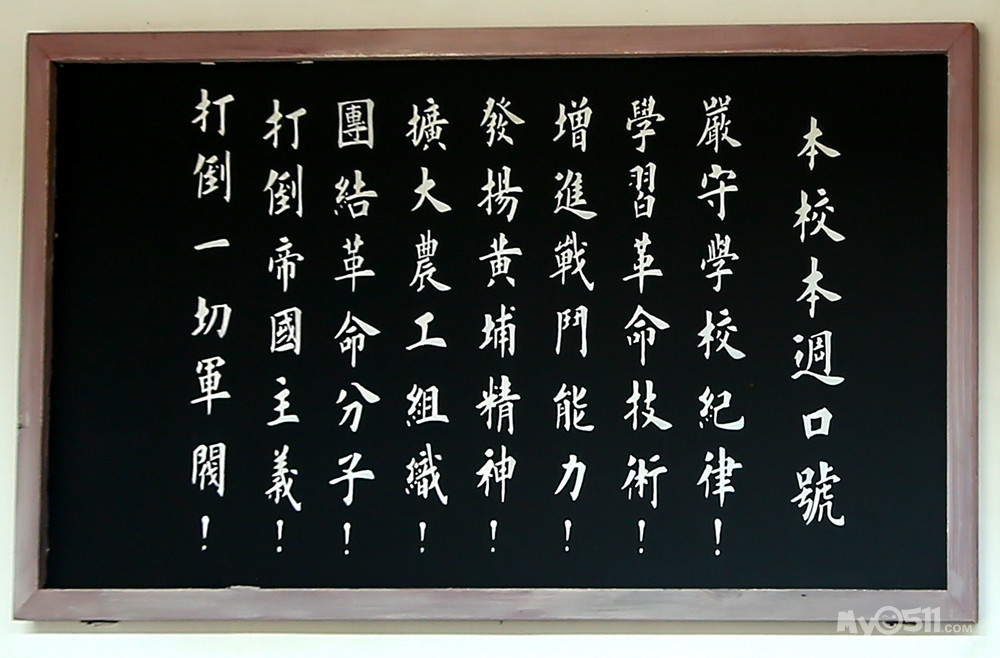 本校本週口號
嚴守學校紀律！
學習革命技術！
增進戰鬥能力！
發揚黃埔精神！
擴大農工組織！
團結革命分子！
打倒帝國主義！
打倒一切軍閥！
My0511.COM